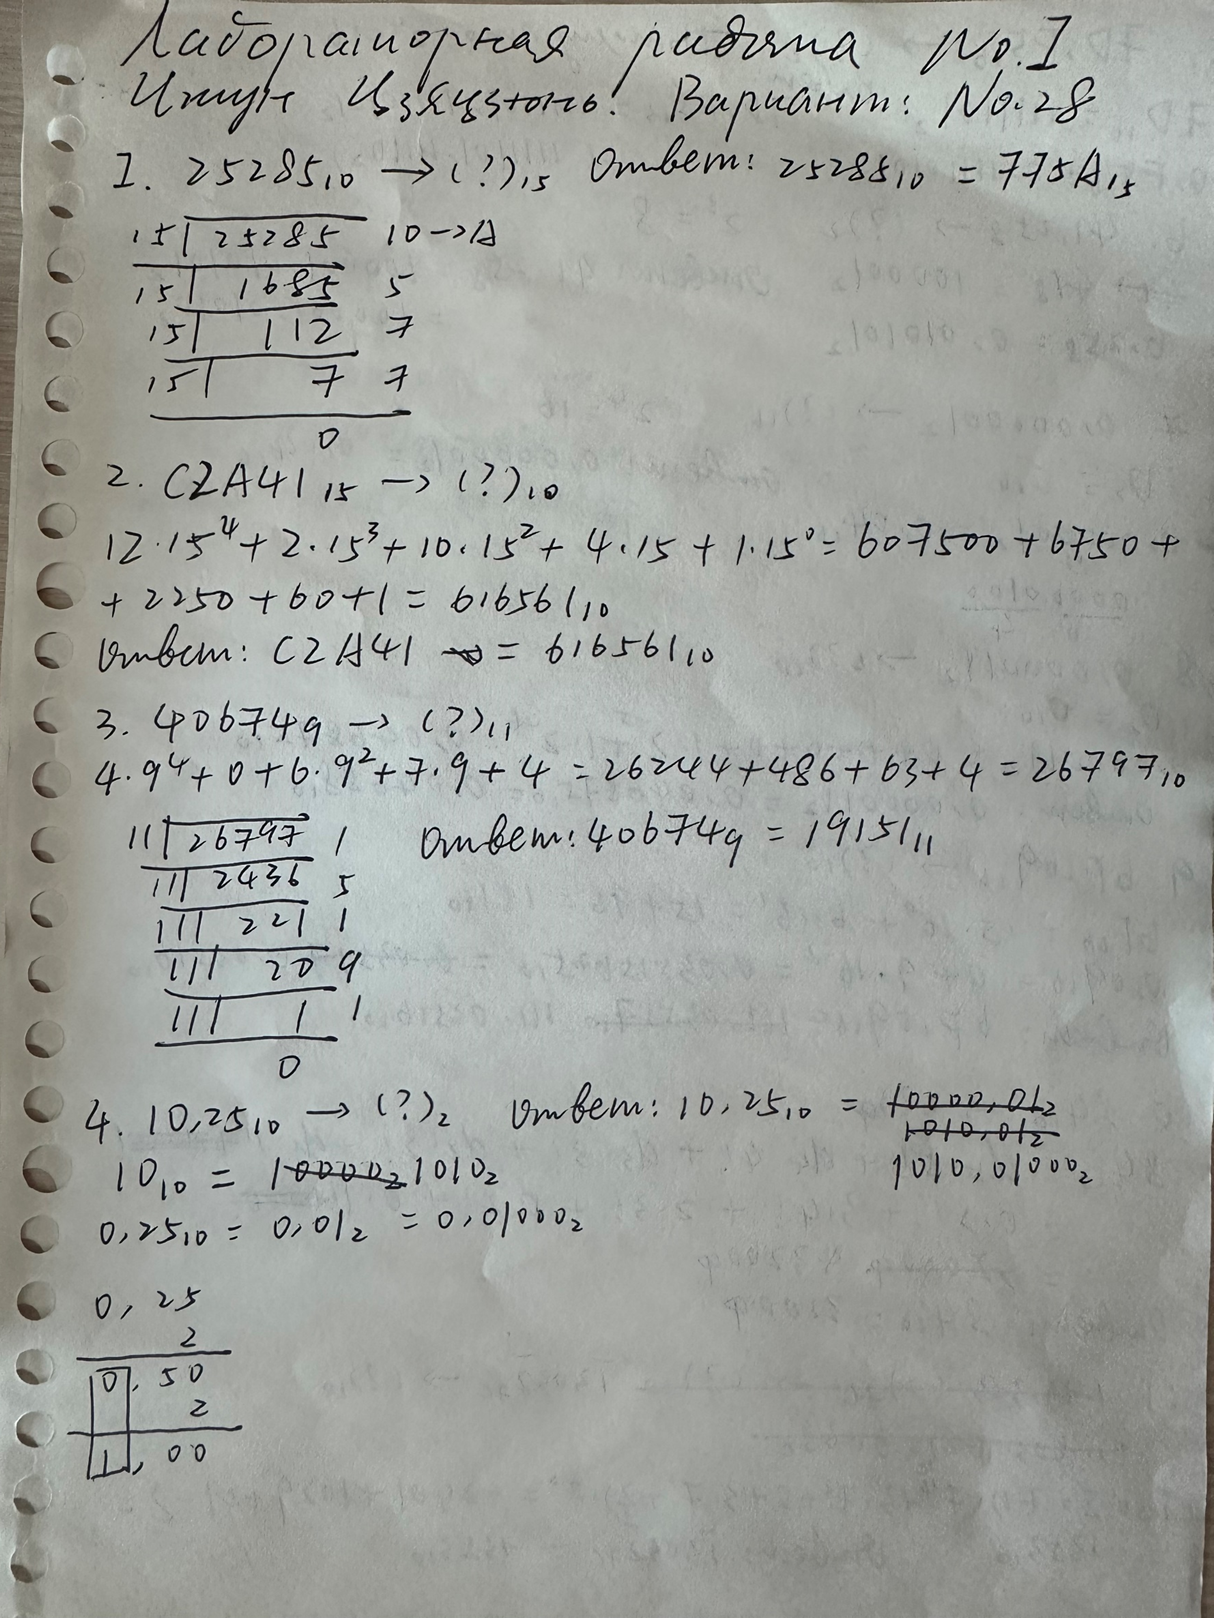 Лабораторная работа No.1
Чжун Цзяцзюнь. Вариант: No.28
1. 25285₁₀ → (?)₁₅ Ответ: 25285₁₀ = 775A₁₅
15| 25285 10→A
15| 1685 5
15| 112 7
15| 7 7
0
2. C2A41₁₅ → (?)₁₀
12·15⁴+2·15³+10·15²+4·15+1·15⁰=607500+6750+
+2250+60+1=616561₁₀
Ответ: C2A41 = 616561₁₀
3. 40674₉ → (?)₁₁
4·9⁴+0+6·9²+7·9+4=26244+486+63+4=26797₁₀
11| 26797 1 Ответ: 40674₉ = 19151₁₁
11| 2436 5
11| 221 1
11| 20 9
11| 1 1
0
4. 10,25₁₀ → (?)₂ Ответ: 10,25₁₀ = 10000,01₂
1010,01₂
10₁₀ = 10000₂ 1010₂ 1010,01000₂
0,25₁₀ = 0,01₂ = 0,01000₂
0,25
2
0,50
2
1,00